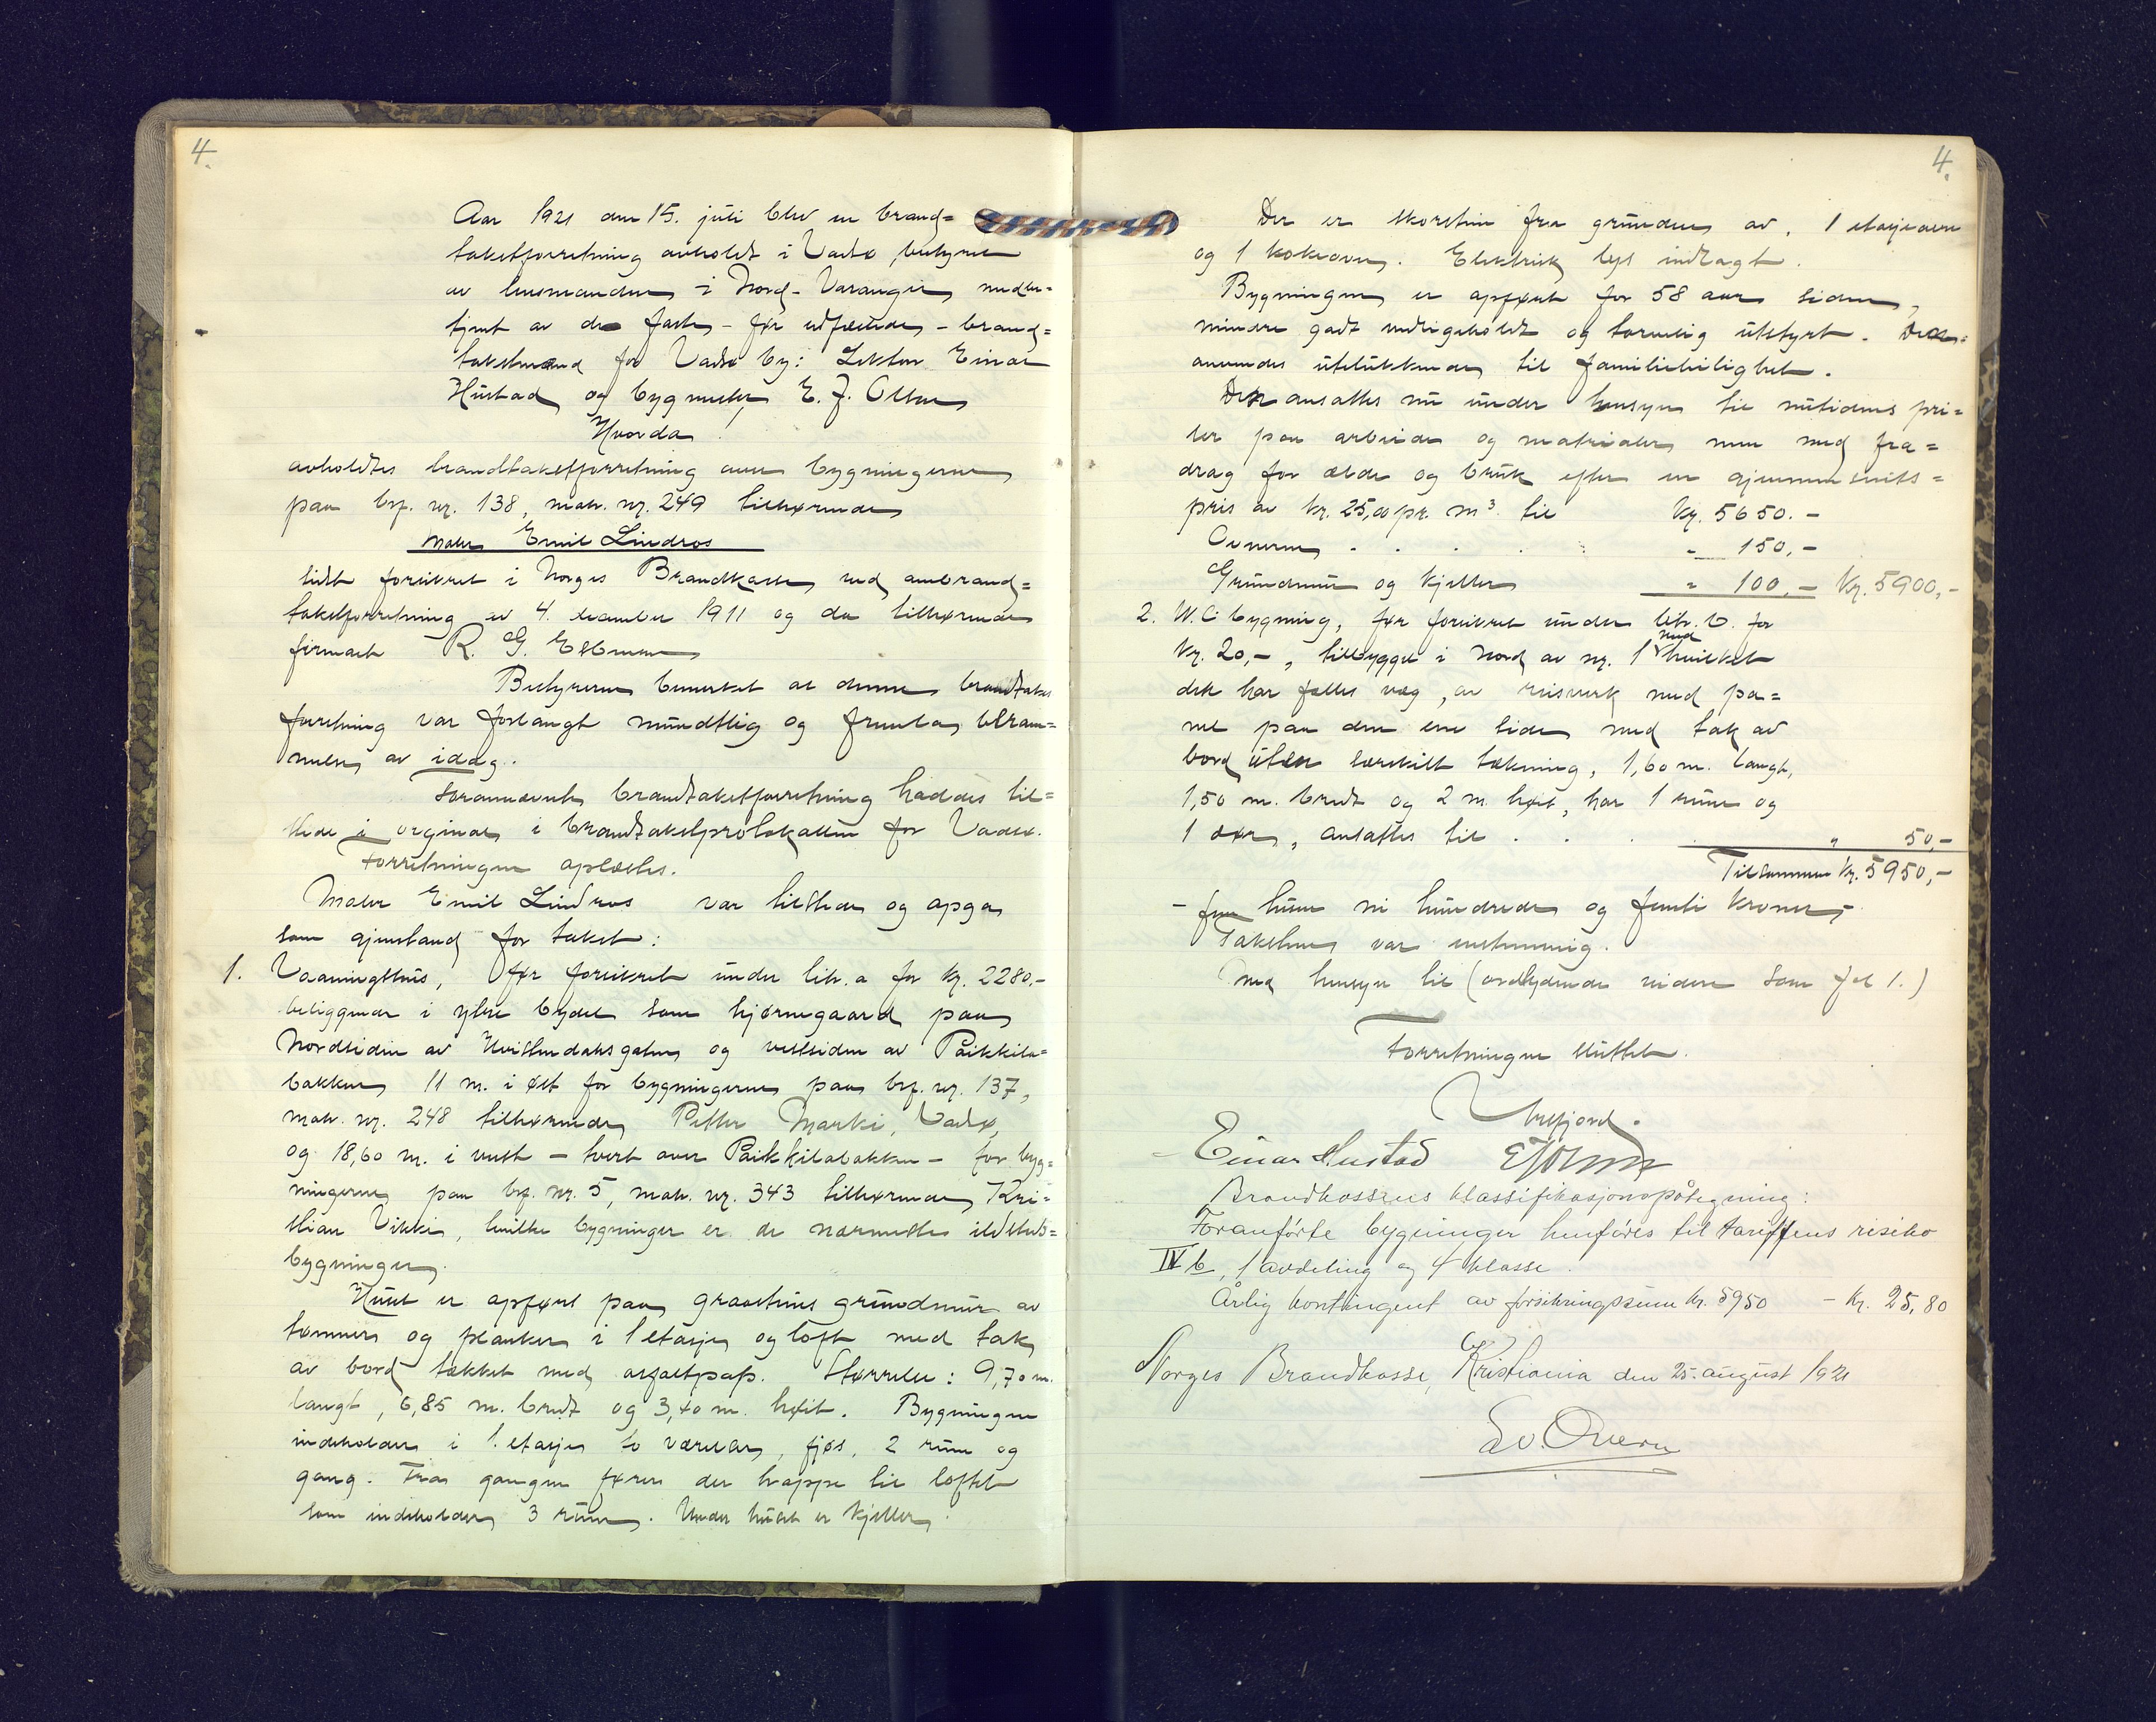 4.
Aar 1921 den 15. juli blev en brand=
takstforretning avholdt i Vadsø, bestyret
av lensmanden i Nord-Varanger, medbe-
tjent av de faste - før edfæstede - brand=
takstmænd for Vadsø by: Lektor Einar
Hustad og bygmester E. J. Olsen
Hvorda!
avholdtes brandtakstforretning over bygningerne
paa brf. nr. 138, matr. nr. 249 tilhørende
maler Emil Lindros
sidst forsikret i Norges Brandkasse ved ombrand=
takstforretning av 4. december 1911 og da tilhørende
firmaet R. G. Esbensen
Bestyreren bemerket at denne brandtakst
forretning var forlangt mundtlig og fremla beram=
melse av idag.
Forannævnte brandtakstforretning haddes til=
stede i orginal i brandtakstprotokollen for Vadsø.
Forretningen oplæstes.
Maler Emil Lindros var tilstede og opga
som gjenstand for takst:
1. Vaaningshus, før forsikret under litr. a for kr. 2280.-
beliggende i ytre bydel som hjørnegaard paa
Nordsiden av Hvistendalsgaten og vestsiden av Paikkila-
bakken 11 m. i øst for bygningerne paa brf. nr. 137,
matr. nr. 248 tilhørende Petter Marki, Vadsø,
og 18,60 m. i vest - tvert over Paikkilabakken - for byg=
ningerne paa brf. nr. 5, matr. nr. 343 tilhørende Kri-
stian Vikki, hvilke bygninger er de nærmeste ildsteds=
bygninger.
Huset er opført paa graastens grundmur av
tømmer og planker i 1 etasje og loft med tak
av bord tækket med asfaltpap. Størrelse: 9,70 m.
langt, 6,85 m. bredt og 3,40 m. høit. Bygningen
indeholder i 1. etasje to værelser, fjøs, 2 rum og
gang. Fra gangen fører der trappe til loftet
som indeholder 3 rum. Under huset er kjelder.
4.
Der er skorsten fra grunden av, 1 etasjeovn
og 1 kokeovn. Elektrisk lys indlagt.
Bygningen er opført for 58 aar siden,
mindre godt vedligeholdt og tarvelig utstyrt. Den
anvendes utelukkende til familieleilighet.
Den ansattes nu under hensyn til nutidens pri-
ser paa arbeide og materialer men med fra=
drag for ælde og bruk efter en gjennemsnits=
pris av kr. 25,00 pr. m³ til kr. 5650.-
Ovnerne . . . . " 150,-
Grundmur og kjelder " 100,- Kr. 5900,-
2. W.C bygning, før forsikret under litr. b. for
kr. 20,-, tilbygget i Nord av nr. 1 med hvilket
det har fælles væg, av reisverk med pa=
nel paa den ene side med tak av
bord uten særskilt tækning, 1,60 m. langt,
1,50 m. bredt og 2 m. høit, har 1 rum og
1 dør, ansattes til . . . " 50,-
Tilsammen Kr. 5950,-
- fem tusen ni hundrede og femti kroner,-
Taksten var enstemmig.
Med hensyn til (ordlydende videre som fol 1.)
Forretningen sluttet.
Einar Hustad E J Olsen
Brandkassens klassifikasjonspåtegning:
Foranførte bygninger henføres til tariffens risiko
IV b, 1 avdeling og 4 klasse.
Årlig kontingent av forsikringssum kr. 5950 - kr. 25,80
Norges Brandkasse, Kristiania den 25. august 1921